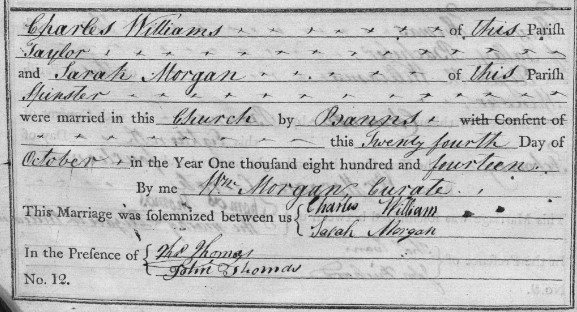 Charles Williams of this Parish
Taylor
and Sarah Morgan of this Parish
Spinster
were married in this Church by Banns with Consent of
this Twenty fourth Day of
October in the Year One thousand eight hundred and fourteen
By me Wm Morgan, Curate
This Marriage was solemnized between us { Charles William
Sarah Morgan
In the Presence of { Thos Thomas
John Thomas
No. 12.